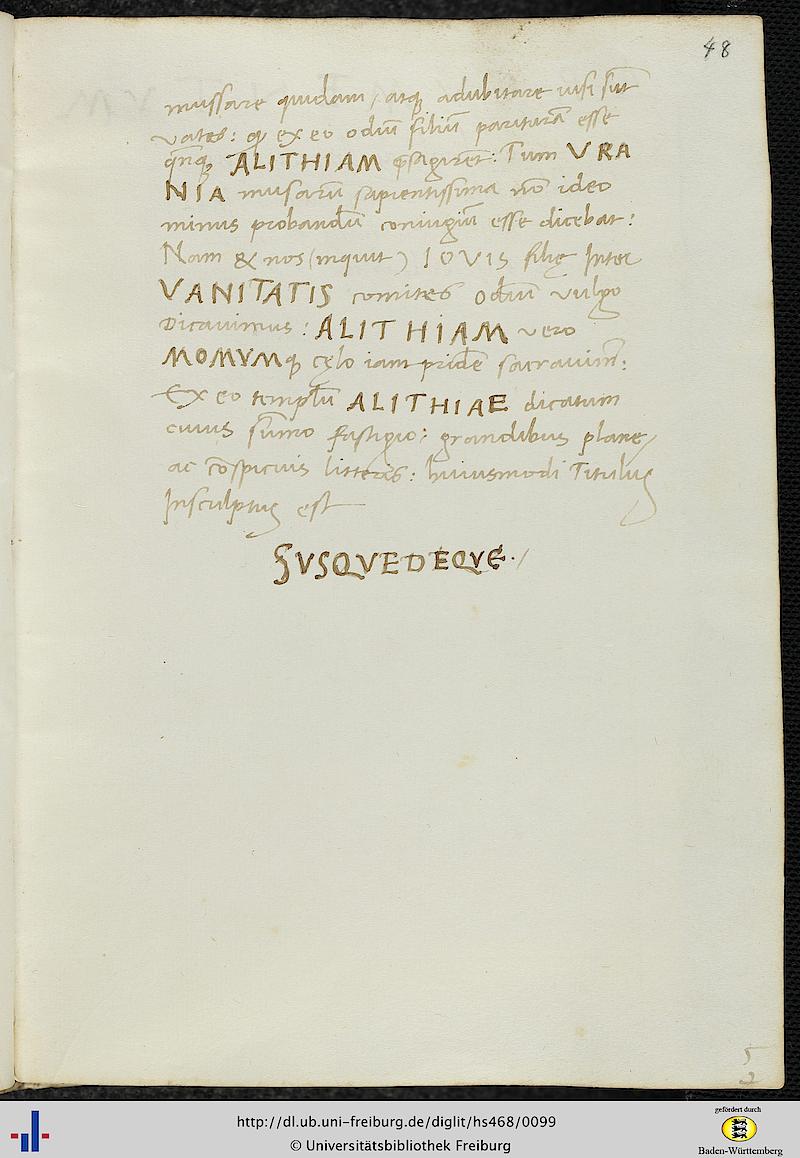 48
mussare quidam / atq; adubitare visi sūt
vates: q̨ ex eo odiū filiū parituꝛā esse
ALITHIAM p̄sagirēt: Tum VRA
NIA musarū sapientissima nō ideo
minus probandū coniugiū esse dicebat:
Nam & nos (inquit) IOVIS filię Inter
VANITATIS comites Odiū vulgo
Dicavimus: ALITHIAM vero
MOMVMq; cęlo iam pridē sacravim̄:
Ex eo templū ALITHIAE dicatum
cuius sūmo fastigio: grandibus plane /
ac cōspicuis litteris: huiusmodi Titulus
Insculptus est
SVSQVEDEQVE·/
5
2
http://dl.ub.uni-freiburg.de/diglit/hs468/0099
© Universitätsbibliothek Freiburg
gefördert durch
Baden-Württemberg